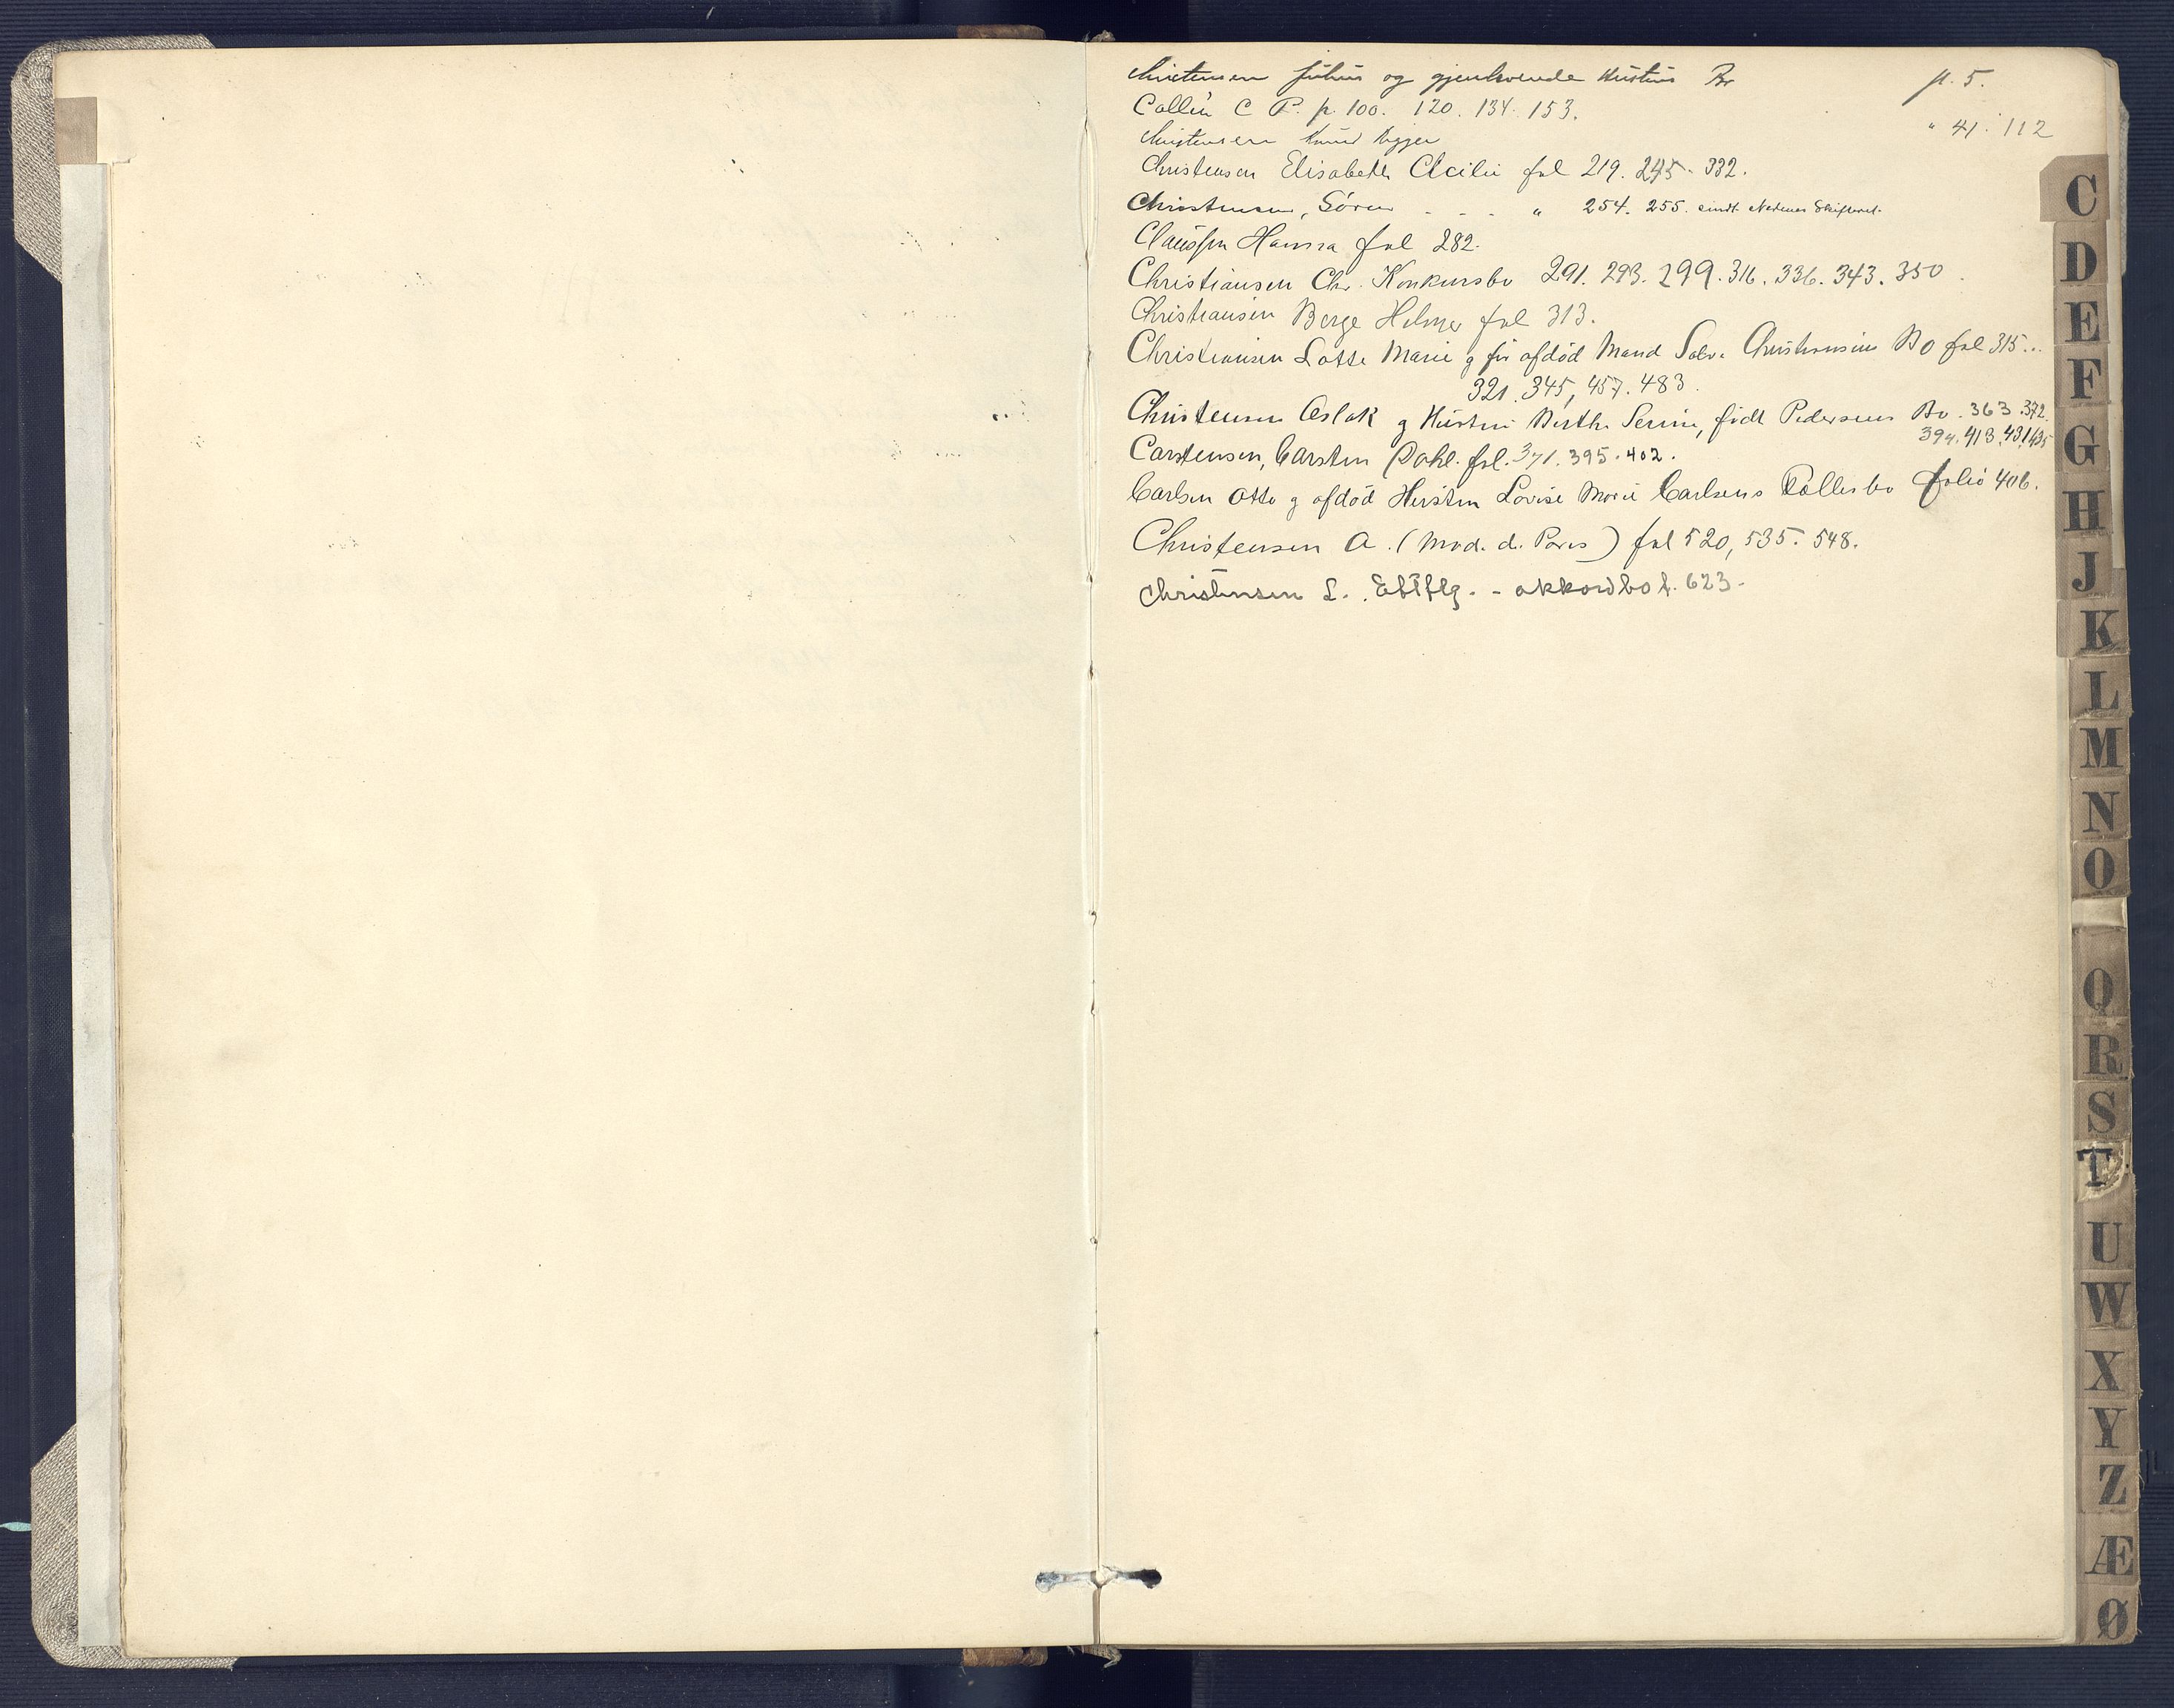 Christensen Julius og gjenlevende Hustrus Bo p. 5.
Collin C P. p. 100. 120. 134. 153.
Christensen Knud " 41. 112
Christensen Elisabeth Cecilie fol 219. 245. 332.
Christensen, Sören - - - " 254. 255. Nedenes Skifteret.
Claussen Hanna fol 282.
Christiansen Chr. Konkursbo 291. 293. 299. 316. 336. 343. 350.
Christiansen Berge Helmer fol 313.
Christiansen Lotte Marie og før afdød Mand Salv. Christiansens Bo fol 315..
321. 345, 457. 483.
Christensen Aslak og Hustru Berthe Serine, født Pedersens Bo. 363. 372.
394. 413. 431. 435
Carstensen, Carsten Dahl. fol. 371. 395. 402.
Carlsen Otto og afdød Hustru Lovise Marie Carlsens Fællesbo folio 406.
Christensen A. (Mad. d. Paris) fol 520, 535. 548.
Christensen L. Eftflg. - akkordbo f. 623-
C
D
E
F
G
H
J
K
L
M
N
O
Q
R
S
T
U
W
X
Y
Z
Æ
Ø